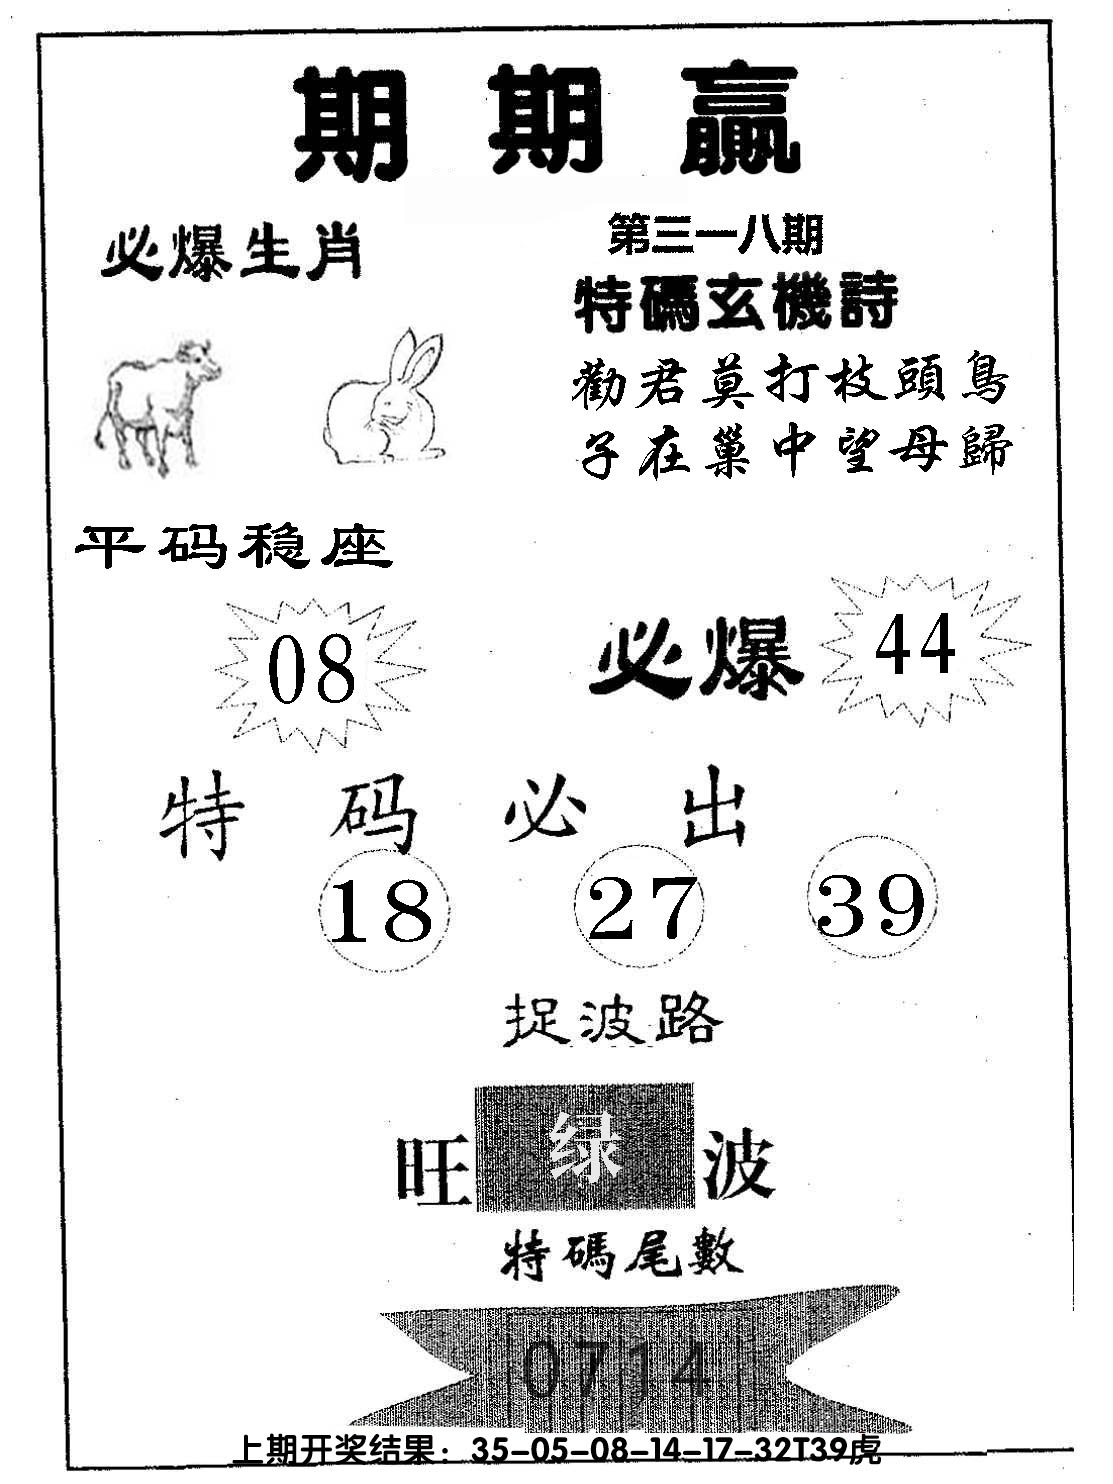 期期赢
必爆生肖
第三一八期
特碼玄機詩
勸君莫打枝頭鳥
子在巢中望母歸
平码稳座
08
必爆 44
特码必出
18 27 39
捉波路
旺 绿 波
特碼尾數
0714
上期开奖结果：35-05-08-14-17-32T39虎